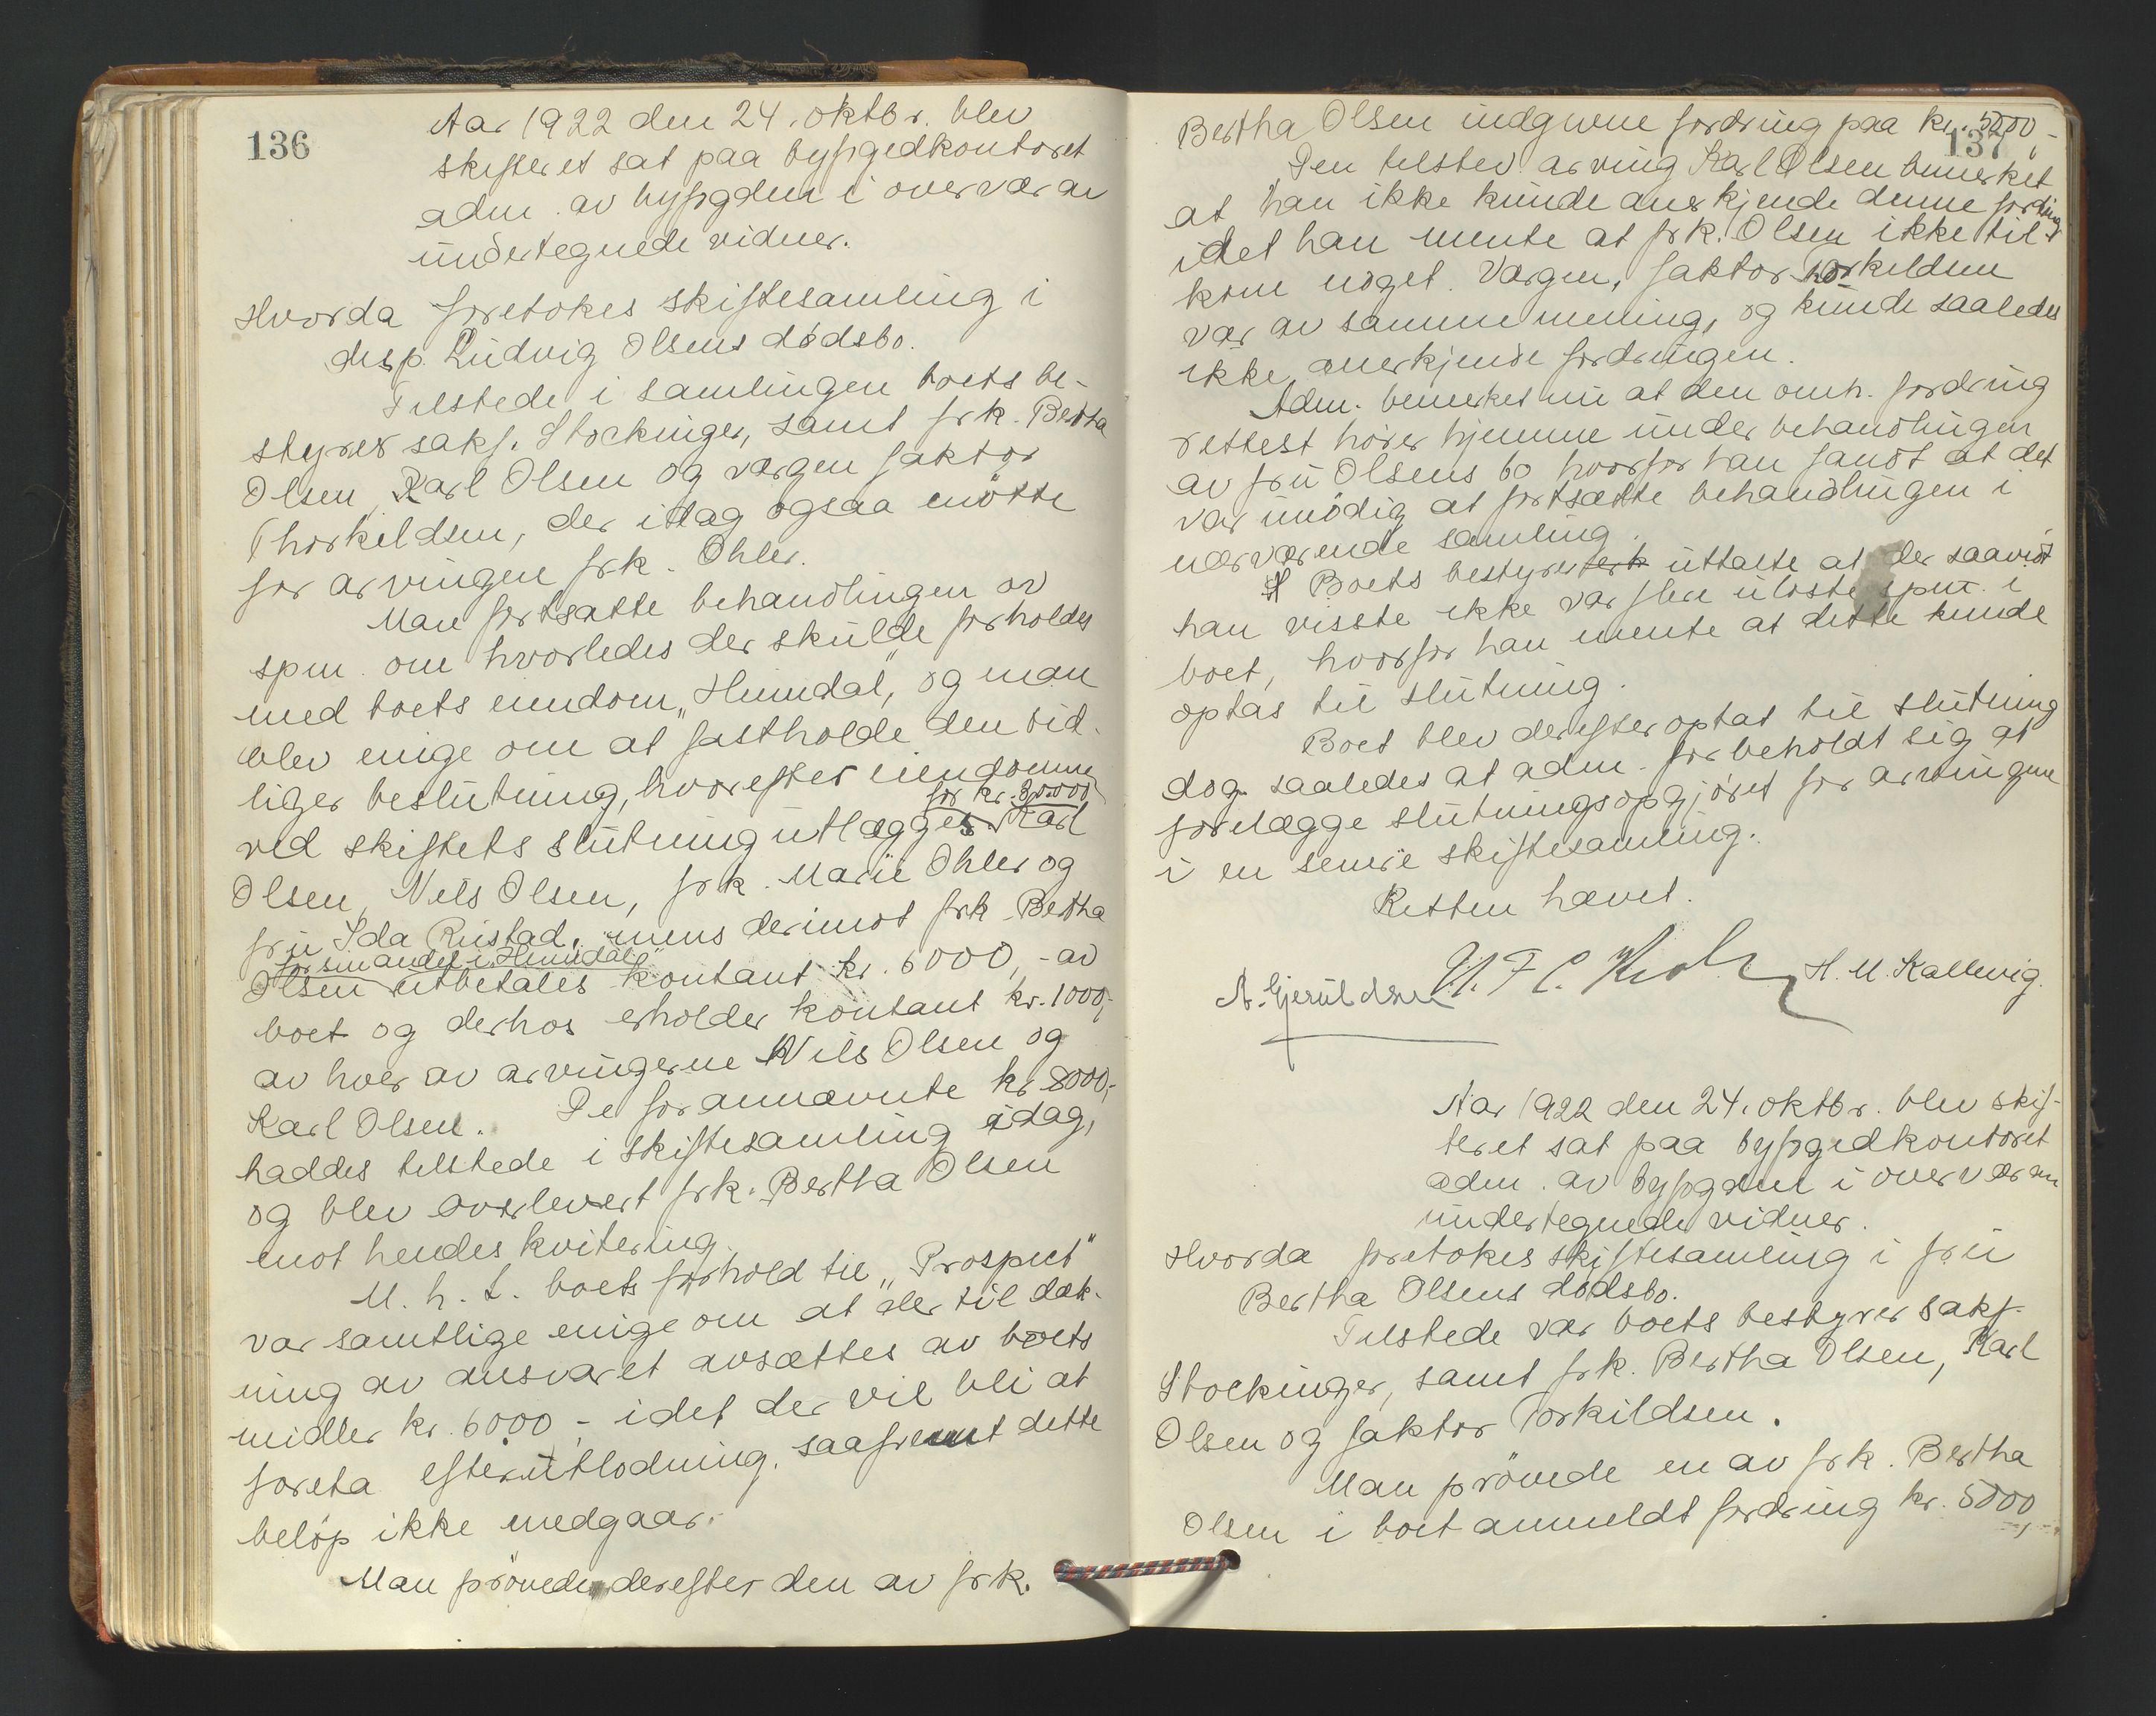 136
Aar 1922 den 24. oktbr. blev
skifteret sat paa byfogedkontoret
adm. av byfogden i overvær av
undertegnede vidner.
Hvorda foretokes skiftesamling i
disp. Ludvig Olsens dødsbo.
Tilstede i samlingen boets be-
styrer sakf. Stockinger, samt frk. Bertha
Olsen, Karl Olsen og værgen faktor
Thorkildsen, der idag ogsaa møtte
for arvingen frk. Ohler.
Man fortsatte behandlingen av
spm. om hvorledes der skulde forholdes
med boets eiendom „Heimdal", og man
blev enige om at fastholde den tid-
liger beslutning, hvorefter eiendommen
for kr. 30000
ved skiftets slutning utlægges Karl
Olsen, Nils Olsen, frk. Marie Ohler og
fru Ida Rustad, mens derimot frk. Bertha
for sin andel i „Heimdal"
Olsen utbetales kontant kr. 6000,- av
boet og derhos erholder kontant kr. 1000,-
av hver av arvingerne Nils Olsen og
Karl Olsen. De forannævnte kr. 8000,-
haddes tilstede i skiftesamling idag,
og blev overlevert frk. Bertha Olsen
mot hendes kvitering.
M. h. t. boets forhold til „Prospect"
var samtlige enige om at der til dæk-
ning av ansvaret avsættes av boets
midler kr. 6000,- idet der vil bli at
foreta efterutlodning, saafremt dette
beløp ikke medgaar.
Man prøvede derefter den av frk.
137
Bertha Olsen indgivne fordring paa kr. 5000,-
Den tilstev. arving Karl Olsen bemerket
at han ikke kunde anerkjende denne fordring
idet han mente at frk. Olsen ikke til-
kom noget. Værgen, faktor Torkildsen
var av samme mening, og kunde saaledes
ikke anerkjende fordringen.
Adm. bemerket nu at den omh. fordring
rettest hører hjemme under behandlingen
av fru Olsens bo hvorfor han fandt at det
var unødig at fortsætte behandlingen i
nærværende samling.
Boets bestyrer uttalte at der saavidt
han visste ikke var flere uløste spm. i
boet, hvorfor han mente at dette kunde
optas til slutning.
Boet blev derefter optat til slutning
dog saaledes at adm. forbeholdt sig at
forelægge slutningsopgjøret for arvingene
i en senere skiftesamling.
Retten hævet.
A. Gjeruldsen H. M. Kallevig
Aar 1922 den 24. oktbr. blev skif-
teret sat paa byfogedkontoret
adm. av byfogden i overvær av
undertegnede vidner.
Hvorda foretokes skiftesamling i fru
Bertha Olsens dødsbo.
Tilstede var boets bestyrer sakf.
Stockinger, samt frk. Bertha Olsen, Karl
Olsen og faktor Torkildsen.
Man prøvede en av frk. Bertha
Olsen i boet anmeldt fordring kr. 5000,-